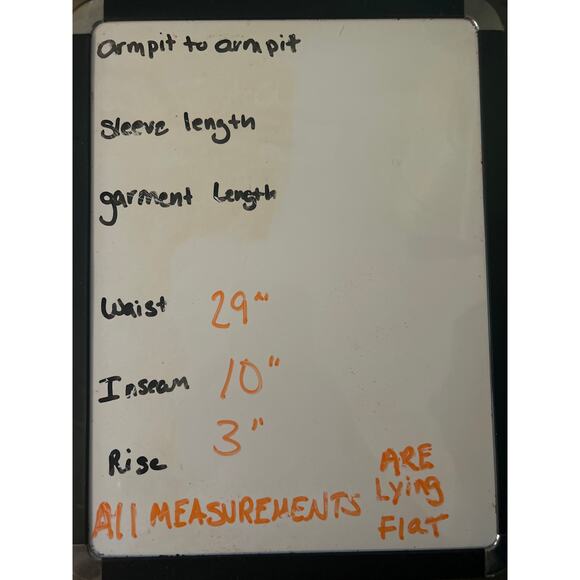 armpit to armpit
Sleeve length
garment Length
Waist 29"
Inseam 10"
Rise 3"
All MEASUREMENTS ARE
Lying
Flat